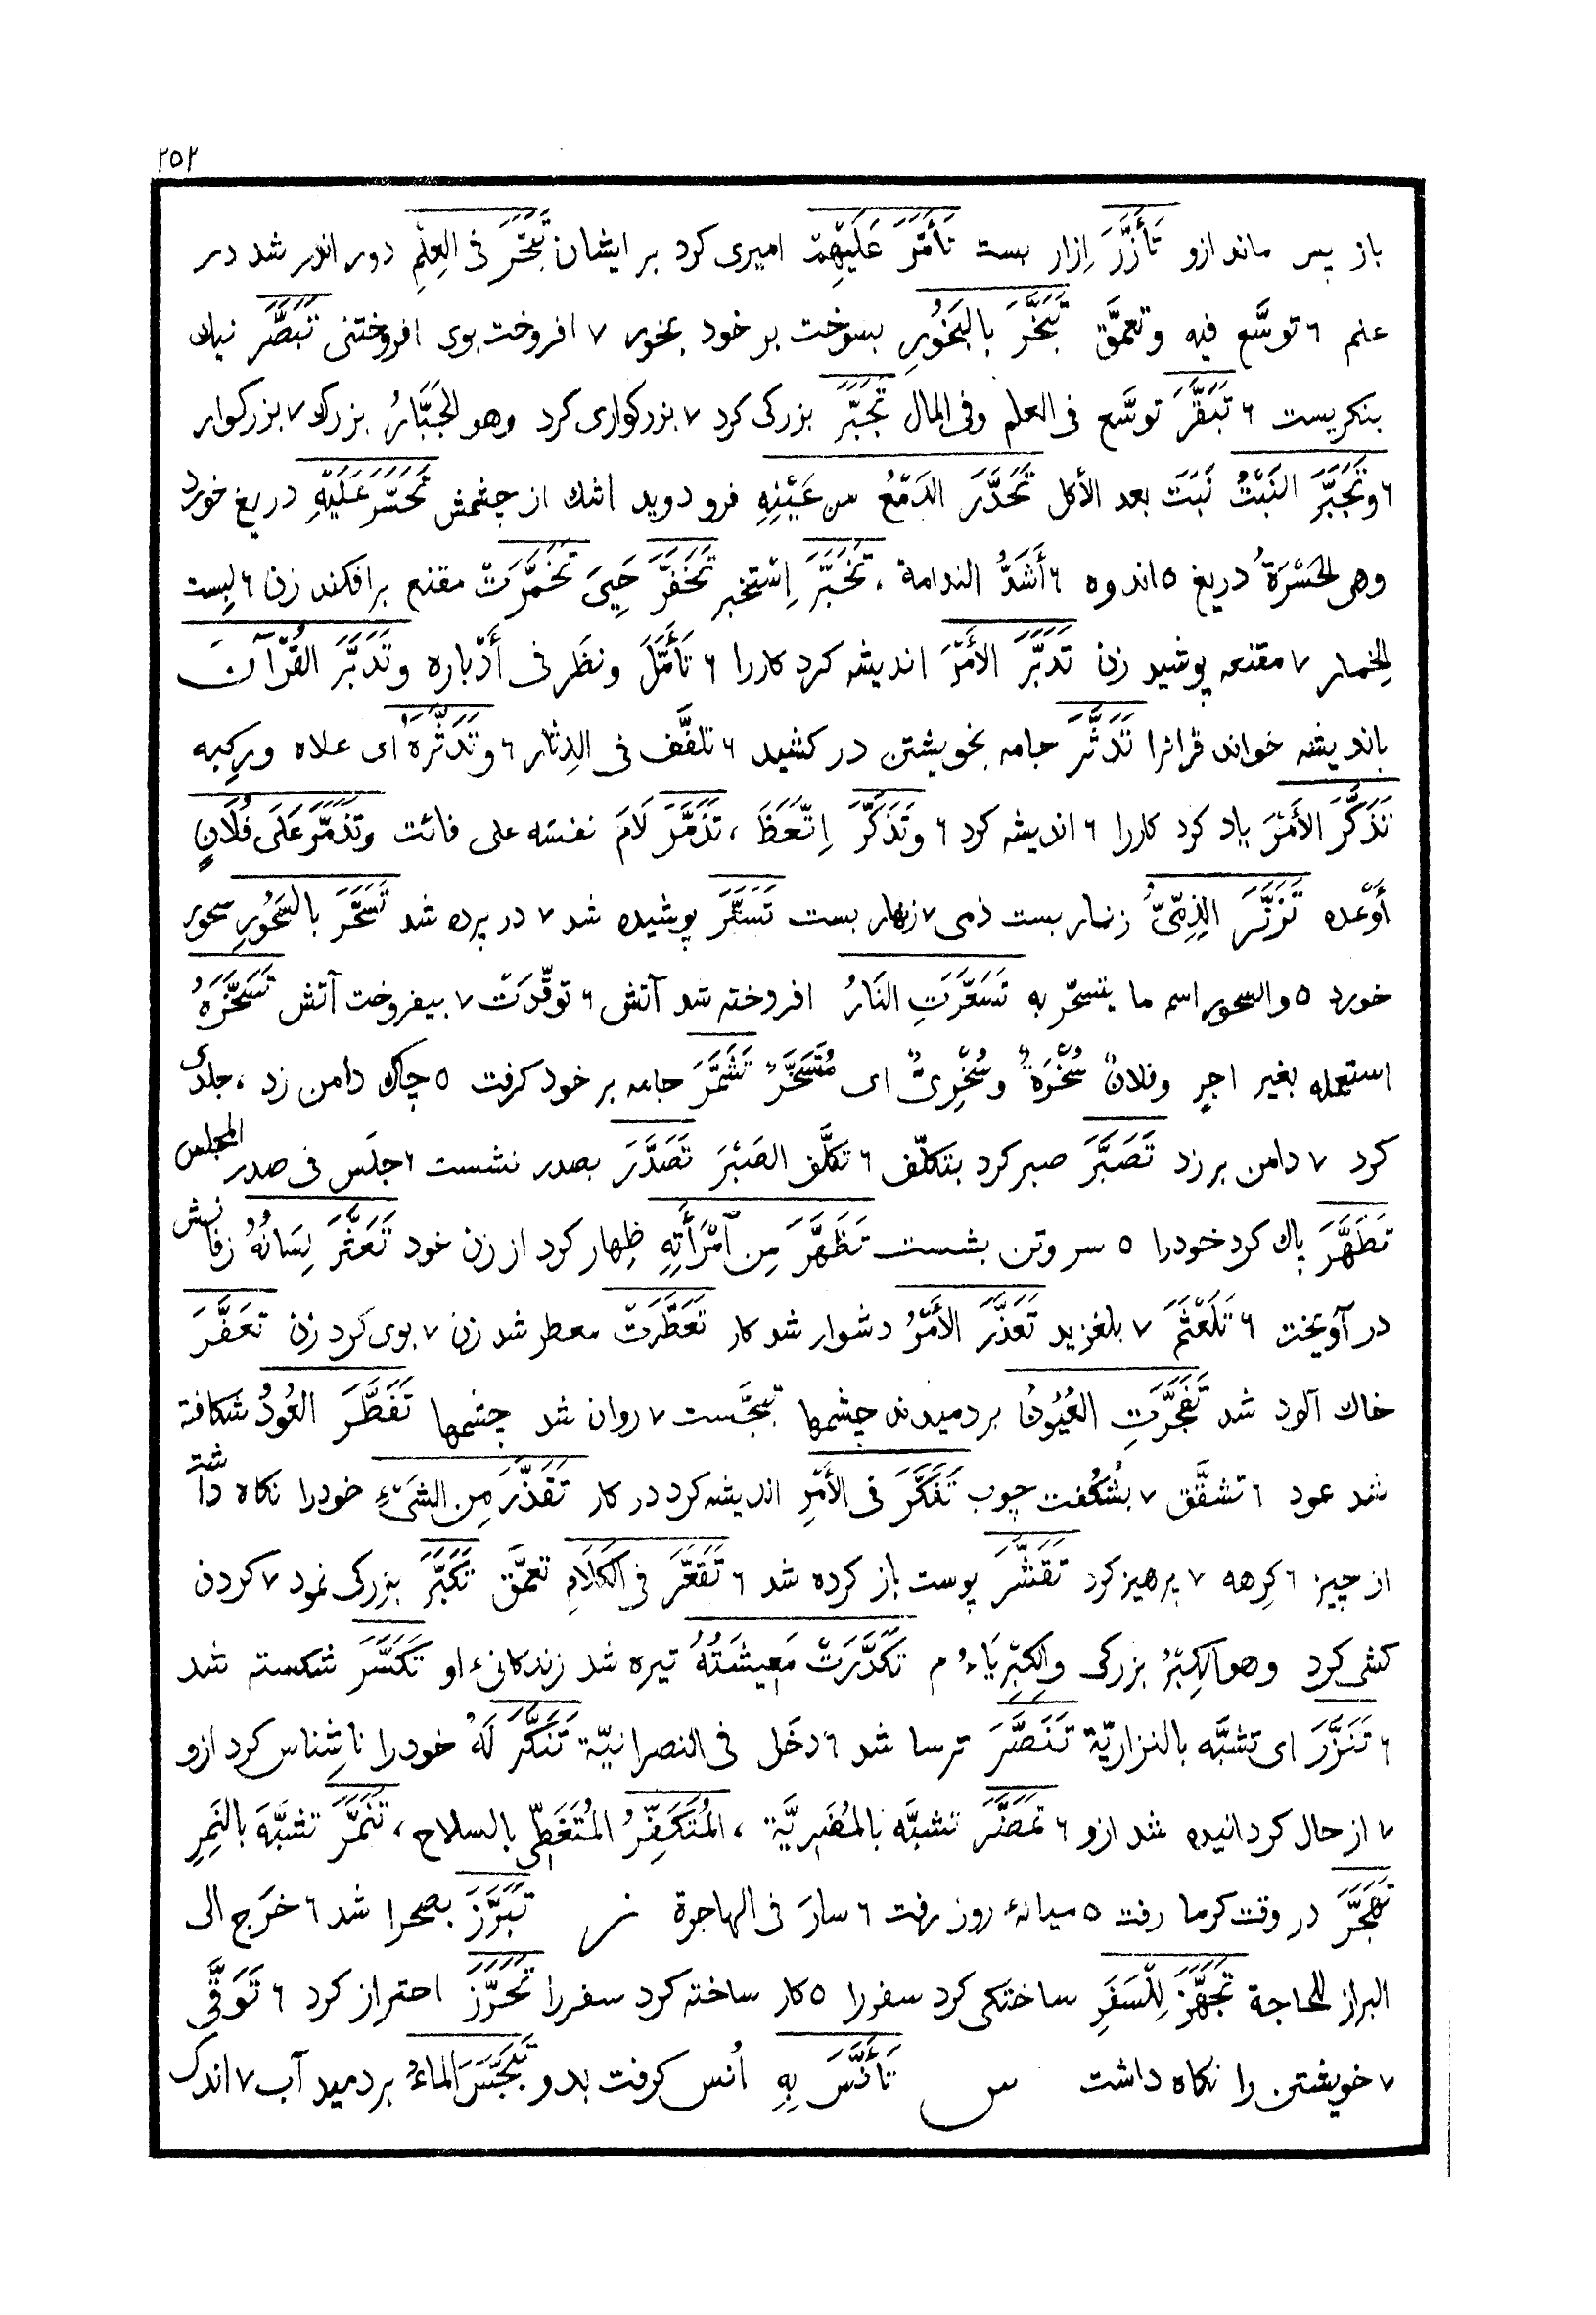 ٢٥٢
باز پس ماند ازو تَأَزَّرَ اِزار بست تَأَمَّرَ عَلَيْهِمْ اميری کرد بر ايشان تَبَحَّرَ فی العِلْمِ دور اندر شد در
علم ٦ توسَّع فيه وتعمَّق تَبَخَّرَ بالبَخُورِ بسوخت بر خود بخور ٧ افروخت بوی افروختنی تَبَصَّرَ نيک
بنکريست ٦ تَبَقَّرَ توسَّع فی العلم وفی المال تَجَبَّرَ بزرکی کرد ٧ بزرکواری کرد وهو الجَبَّارُ بزرك ٧ بزرکوار
٦ وتَجَبَّرَ النَبْتُ نَبَتَ بعد الأكل تَحَدَّرَ الدَمْعُ من عَيْنِهِ فرو دويد اشك از چشمش تَحَسَّرَ عَلَيْهِ دريغ خورد
وهی الحَسْرَةُ دريغ ٥ اندوه ٦ أَشَدُّ الندامة ، تَخَبَّرَ اِسْتخبر تَخَفَّرَ حَيِیَ تَخَمَّرَتْ مقنع برافکند زن ٦ لبست
الخمار ٧ مقنعه پوشيد زن تَدَبَّرَ الأَمْرَ انديشه کرد کاررا ٦ تَأَمَّلَ ونظَر فی أَدْباره وتَدَبَّرَ القُرْآنَ
بانديشه خواند قرانرا تَدَثَّرَ جامه بخويشتن در کشيد ٦ تلفَّف فی الدِثار ٦ وتَدَثَّرَهُ ای علاه ورکِبه
تَذَكَّرَ الأَمْرَ ياد کرد کاررا ٦ انديشه کرد ٦ وتَذَكَّرَ اِتَّعَظَ ، تَذَمَّرَ لَامَ نفسَه على فائت وتَذَمَّرَ عَلَى فُلَانٍ
أَوْعَده تَزَنَّرَ الذِمِّیُّ زنار بست ذمی ٧ زنار بست تَسَتَّرَ پوشيده شد ٧ در پرده شد تَسَحَّرَ بالسَحُورِ سحور
خورد ٥ والسحور اسم ما يتسحّر به تَسَعَّرَتِ النَارُ افروخته شد آتش ٦ توقّدَتْ ٧ بيفروخت آتش تَسَخَّرَهُ
استعمله بغير اجرٍ وفلانٌ سُخْرَةٌ وسُخْرِیٌّ ای مُتَسَخَّرٌ تَشَمَّرَ جامه بر خود کرفت ٥ چاک دامن زد ، جلدی
کرد ٧ دامن بر زد تَصَبَّرَ صبر کرد بتکلّف ٦ تكلَّف الصَبْرَ تَصَدَّرَ بصدر نشست ٦ جلَس فی صدر المجلس
تَطَهَّرَ پاک کرد خودرا ٥ سر وتن بشست تَظَهَّرَ مِن اَمْرَأَتِهِ ظِهار کرد از زن خود تَعَثَّرَ لِسَانُهُ زفانش
در آويخت ٦ تَلَعْثَمَ ٧ بلغزيد تَعَذَّرَ الأَمْرُ دشوار شد کار تَعَطَّرَتْ معطر شد زن ٧ بوی کرد زن تَعَفَّرَ
خاك آلود شد تَفَجَّرَتِ العُيُونُ بردميدند چشمها تبجَّست ٧ روان شد چشمها تَفَطَّرَ العُودُ شکافته
شد عود ٦ تشقَّق ٧ بشُکُفت چوب تَفَكَّرَ فی الأَمْرِ انديشه کرد در کار تَقَذَّرَ مِن الشَیْءِ خودرا نکاه داشت
از چيز ٦ کرِهه ٧ پرهيز کرد تَقَشَّرَ پوست باز کرده شد ٦ تَقَعَّرَ فی الكَلَامِ تعمَّق تَكَبَّرَ بزرکی نمود ٧ کردن
کشی کرد وهو الكِبْرُ بزرکی والكِبْرِيَاءُ م تَكَدَّرَتْ مَعِيشَتُهُ تيره شد زندکانیٔ او تَكَسَّرَ شکسته شد
٦ تَنَزَّرَ ای تشبَّه بالنزاريّة تَنَصَّرَ ترسا شد ٦ دخَل فی النصرانيّة تَنَكَّرَ لَهُ خودرا ناشِناس کرد ازو
٧ از حال کردانيده شد ازو ٦ تَمَضَّرَ تشبَّه بالمُضَرِيَّة ، المُتَكَفِّرُ المُتَغَطِّی بالسلاح ، تَنَمَّرَ تشبَّهَ بالنَمِرِ
تَهَجَّرَ در وقت کرما رفت ٥ ميانهٔ روز رفت ٦ سارَ فی الهاجرة ز تَبَرَّزَ بصحرا شد ٦ خرَج الى
البراز للحاجة تَجَهَّزَ لِلْسَفَرِ ساختکی کرد سفررا ٥ کار ساخته کرد سفررا تَحَرَّزَ احتراز کرد ٦ تَوَقَّی
٧ خويشتن را نکاه داشت س تَأَنَّسَ بِهِ اُنس کرفت بدو تَبَجَّسَ الماءُ بردميد آب ٧ اندک